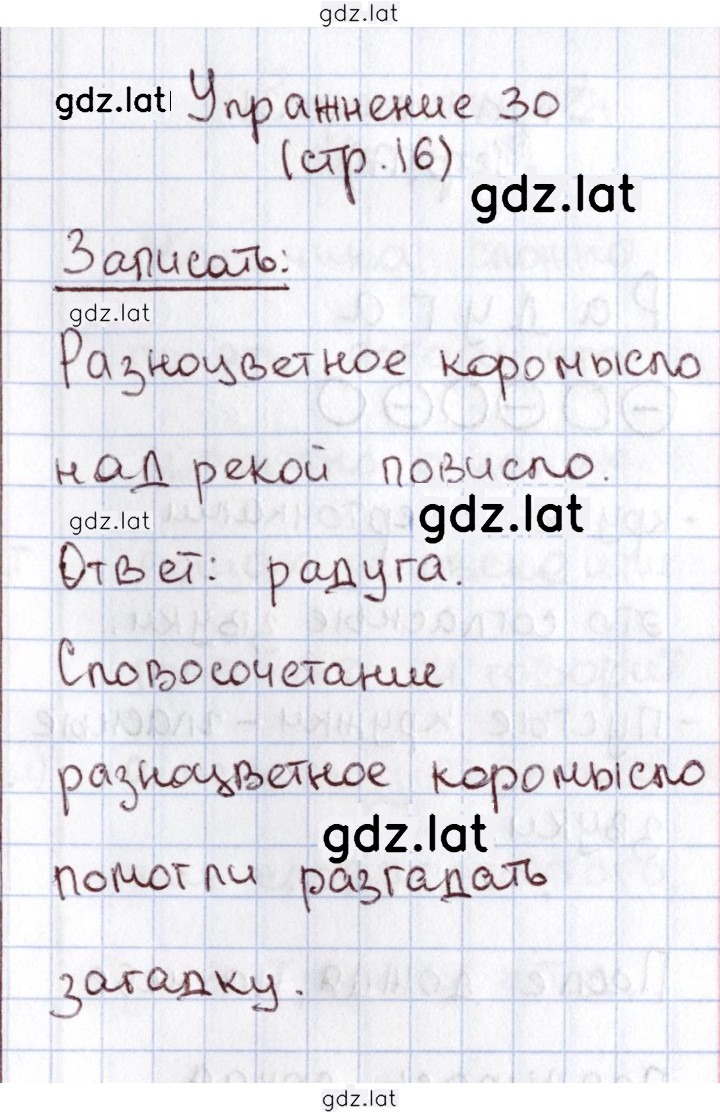 gdz.lat
gdz.lat Упражнение 30
(стр.16)
gdz.lat
Записать:
gdz.lat
Разноцветное коромысло
над рекой повисло.
gdz.lat gdz.lat
Ответ: радуга.
Словосочетание
разноцветное коромысло
gdz.lat
помогли разгадать
загадку.
gdz.lat